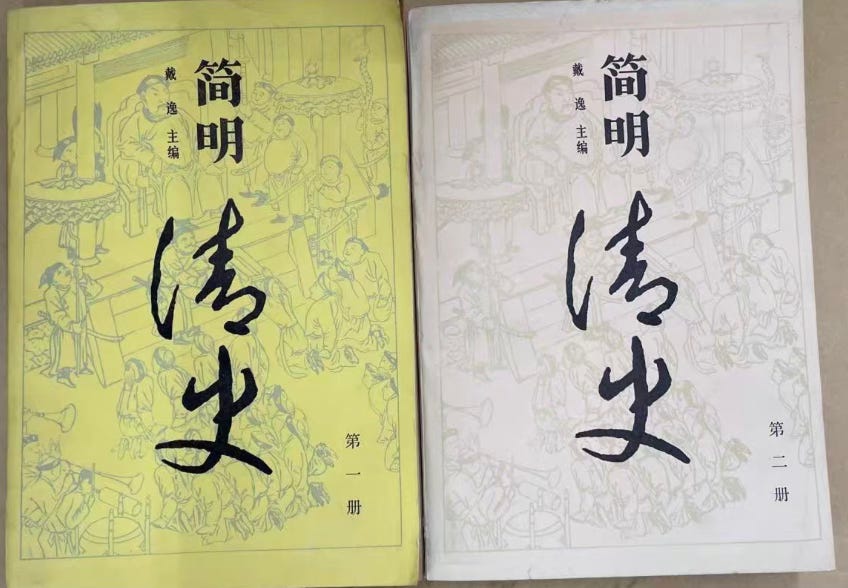 简明
戴逸 主编
清史
第一册
简明
戴逸 主编
清史
第二册